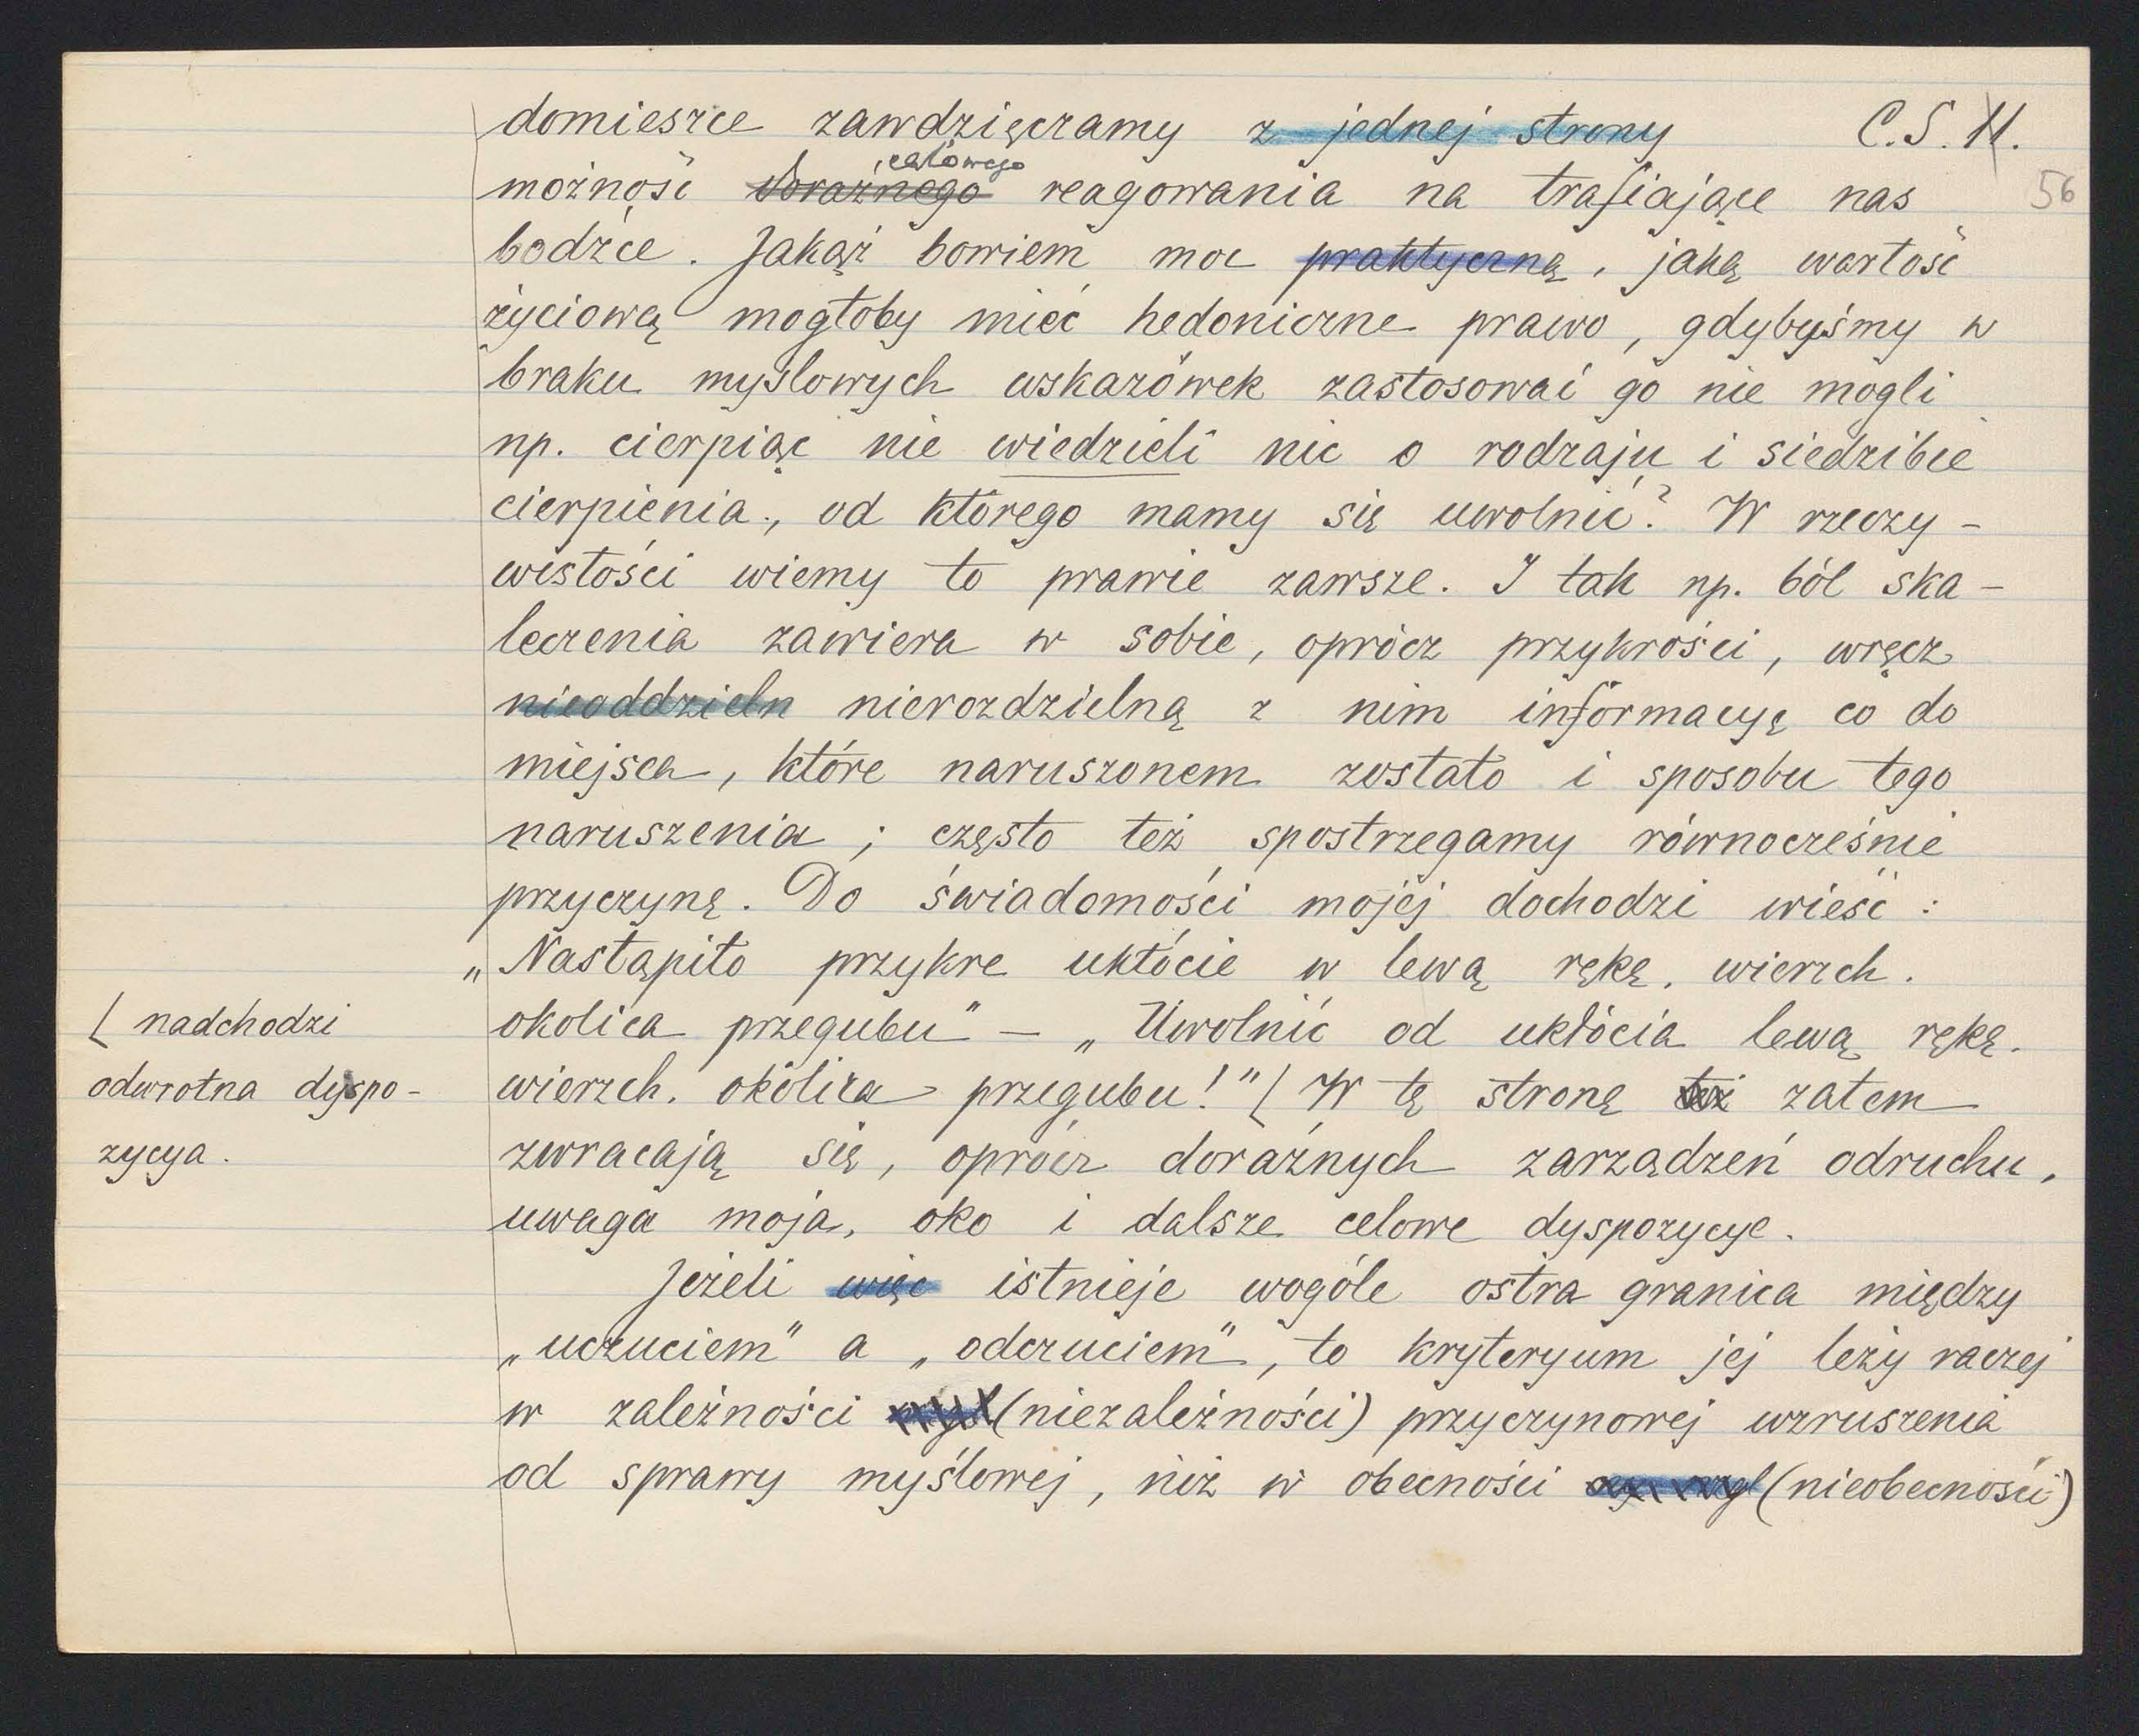 domieszce zawdzięczamy z jednej strony C.S.11.
celowego
możność doraźnego reagowania na trafiające nas 56
bodźce. Jakąż bowiem moc praktyczną, jaką wartość
życiową mogłoby mieć hedoniczne prawo, gdybyśmy w
braku myślowych wskazówek zastosować go nie mogli
np. cierpiąc nie wiedzieli nic o rodzaju i siedzibie
cierpienia, od którego mamy się uwolnić? W rzeczy-
wistości wiemy to prawie zawsze. I tak np. ból ska-
leczenia zawiera w sobie, oprócz przykrości, wręcz
nieoddzieln nierozdzielną z nim informacyę co do
miejsca, które naruszonem zostało i sposobu tego
naruszenia; często też spostrzegamy równocześnie
przyczynę. Do świadomości mojej dochodzi wieść:
„Nastąpiło przykre ukłócie w lewą rękę, wierzch.
okolica przegubu" — „Uwolnić od ukłócia lewą rękę.
wierzch. okolica przegubu!" [ W tę stronę też zatem
zwracają się, oprócz doraźnych zarządzeń odruchu,
uwaga moja, oko i dalsze celowe dyspozycye.
[ nadchodzi
odwrotna dyspo-
zycya.
Jeżeli więc istnieje wogóle ostra granica między
„uczuciem" a „odczuciem", to kryteryum jej leży raczej
w zależności (niezależności) przyczynowej wzruszenia
od sprawy myślowej, niż w obecności (nieobecności)